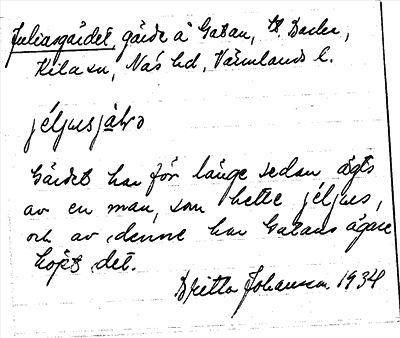 Juliasgärdet, gärde å Gatan,
Kila sn, Näs hd, Värmlands l.
jéljusjálrə
Gärdet har för länge sedan ägts
av en man, som hette jéljus,
och av denne har Gatans ägare
köpt det.
Britta Johansson 1934